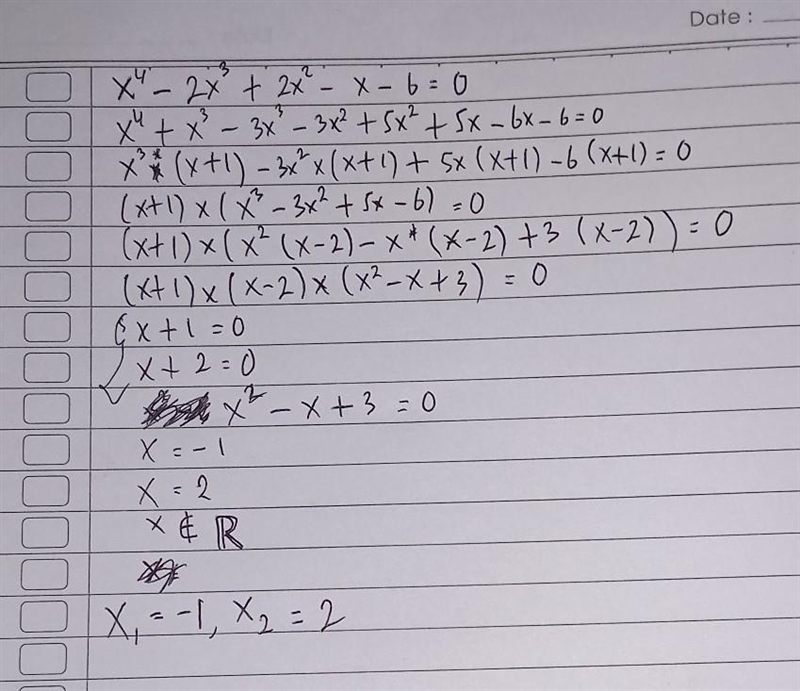 Date :
x⁴ - 2x³ + 2x² - x - 6 = 0
x⁴ + x³ - 3x³ - 3x² + 5x² + 5x - 6x - 6 = 0
x³ * (x+1) - 3x² × (x+1) + 5x (x+1) - 6 (x+1) = 0
(x+1) × (x³ - 3x² + 5x - 6) = 0
(x+1) × (x² (x-2) - x * (x-2) + 3 (x-2)) = 0
(x+1) × (x-2) × (x² - x + 3) = 0
x + 1 = 0
x + 2 = 0
x² - x + 3 = 0
x = -1
x = 2
x ∉ ℝ
x₁ = -1, x₂ = 2